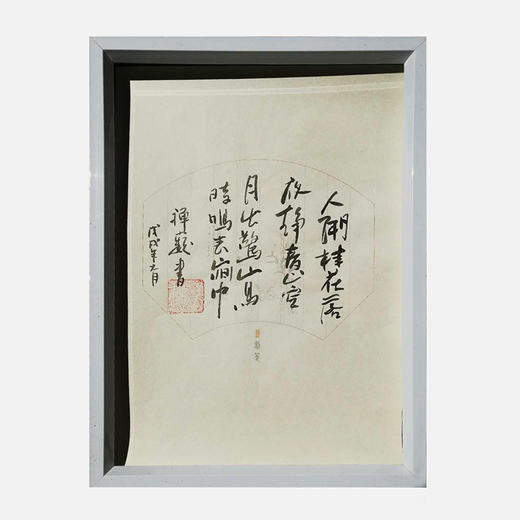 人閒桂花落
夜靜春山空
月出驚山鳥
時鳴春澗中
書
戊戌年